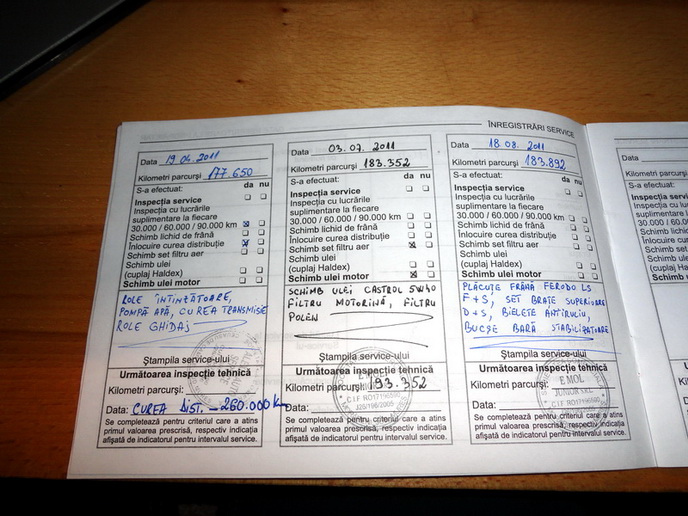 ÎNREGISTRĂRI SERVICE
Data 19.04.2011
Kilometri parcurşi 177 650
S-a efectuat: da nu
Inspecţia service
Inspecţia cu lucrările
suplimentare la fiecare
30.000 / 60.000 / 90.000 km
Schimb lichid de frână
Înlocuire curea distribuţie
Schimb set filtru aer
Schimb ulei
(cuplaj Haldex)
Schimb ulei motor
ROLE ÎNTINZĂTOARE,
POMPĂ APĂ, CUREA TRANSMISIE
ROLE GHIDAJ
Ştampila service-ului
Următoarea inspecţie tehnică
Kilometri parcurşi:
Data: CUREA DIST. – 260.000 km
Se completează pentru criteriul care a atins
primul valoarea prescrisă, respectiv indicaţia
afişată de indicatorul pentru intervalul service.
Data 03.07.2011
Kilometri parcurşi 183.352
S-a efectuat: da nu
Inspecţia service
Inspecţia cu lucrările
suplimentare la fiecare
30.000 / 60.000 / 90.000 km
Schimb lichid de frână
Înlocuire curea distribuţie
Schimb set filtru aer
Schimb ulei
(cuplaj Haldex)
Schimb ulei motor
SCHIMB ULEI CASTROL 5W40
FILTRU MOTORINĂ, FILTRU
POLEN
Ştampila service-ului
Următoarea inspecţie tehnică
Kilometri parcurşi: 193.352
Data:
Se completează pentru criteriul care a atins
primul valoarea prescrisă, respectiv indicaţia
afişată de indicatorul pentru intervalul service.
Data 18.08.2011
Kilometri parcurşi 183.892
S-a efectuat: da nu
Inspecţia service
Inspecţia cu lucrările
suplimentare la fiecare
30.000 / 60.000 / 90.000 km
Schimb lichid de frână
Înlocuire curea distribuţie
Schimb set filtru aer
Schimb ulei
(cuplaj Haldex)
Schimb ulei motor
PLĂCUȚE FRÂNĂ FERODO LS
F+S, SET BRAȚE SUPERIOARE
D+S, BIELETE ANTIRULIU,
BUCȘE BARĂ STABILIZATOARE
Ştampila service-ului
Următoarea inspecţie tehnică
Kilometri parcurşi:
EMOL
JUNIOR SRL
Data:
Se completează pentru criteriul care a atins
primul valoarea prescrisă, respectiv indicaţia
afişată de indicatorul pentru intervalul service.